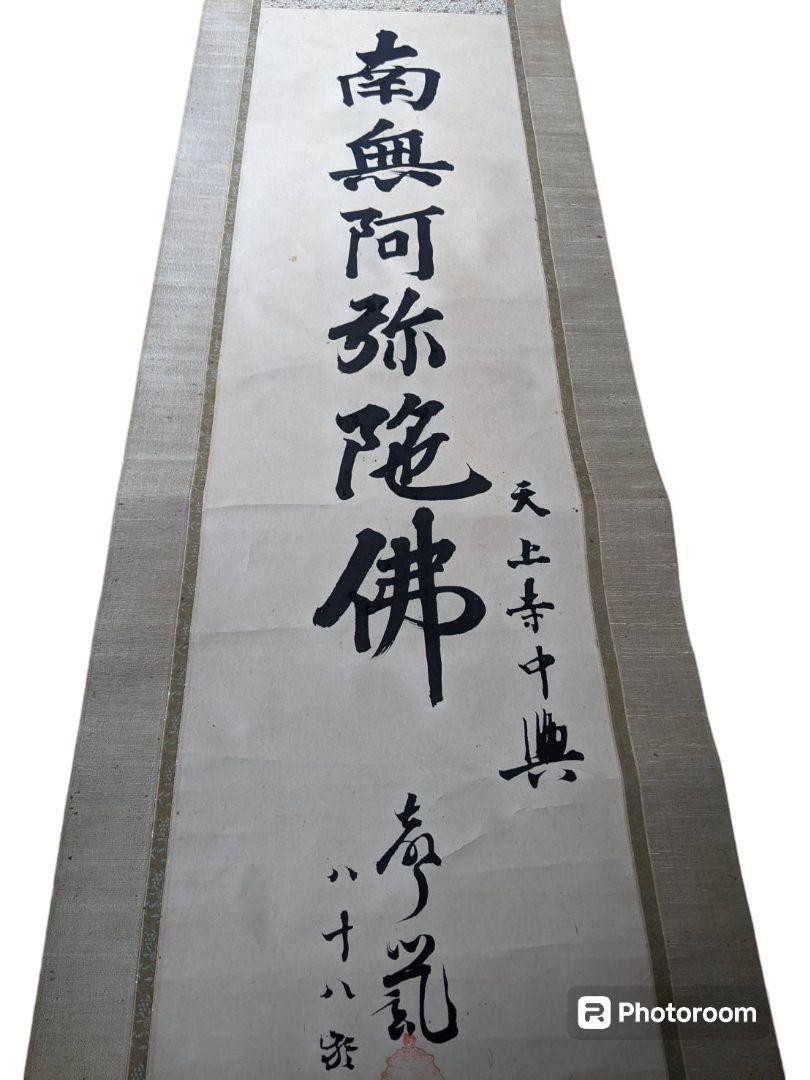 南無阿弥陀佛
天上寺中興
八十八
Photoroom